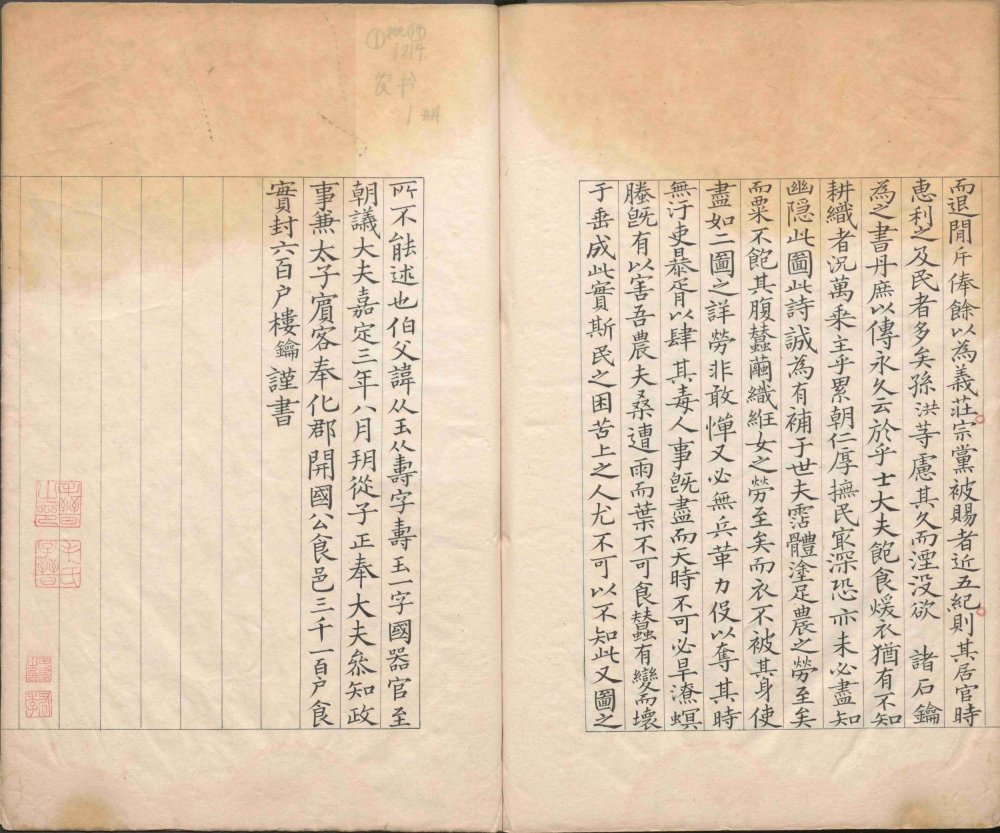 而退閒斥俸餘以為義莊宗黨被賜者近五紀則其居官時
惠利之及民者多矣孫洪等慮其久而湮没欲 諸石鑰
為之書丹庶以傳永久云於乎士大夫飽食煖衣猶有不知
耕織者況萬乘主乎累朝仁厚撫民㝡深恐亦未必盡知
幽隠此圖此詩誠為有補于世夫霑體塗足農之勞至矣
而粟不飽其腹蠶繭織絍女之勞至矣而衣不被其身使
盡如二圖之詳勞非敢憚又必無兵革力役以奪其時
無汙吏暴胥以肆其毒人事旣盡而天時不可必旱潦螟
螣旣有以害吾農夫桑遭雨而葉不可食蠶有變而壞
于垂成此實斯民之困苦上之人尤不可以不知此又圖之
所不能述也伯父諱从玉从壽字壽玉一字國器官至
朝議大夫嘉定三年八月玥從子正奉大夫叅知政
事兼太子賓客奉化郡開國公食邑三千一百户食
實封六百户樓鑰謹書
1214
农书
1册